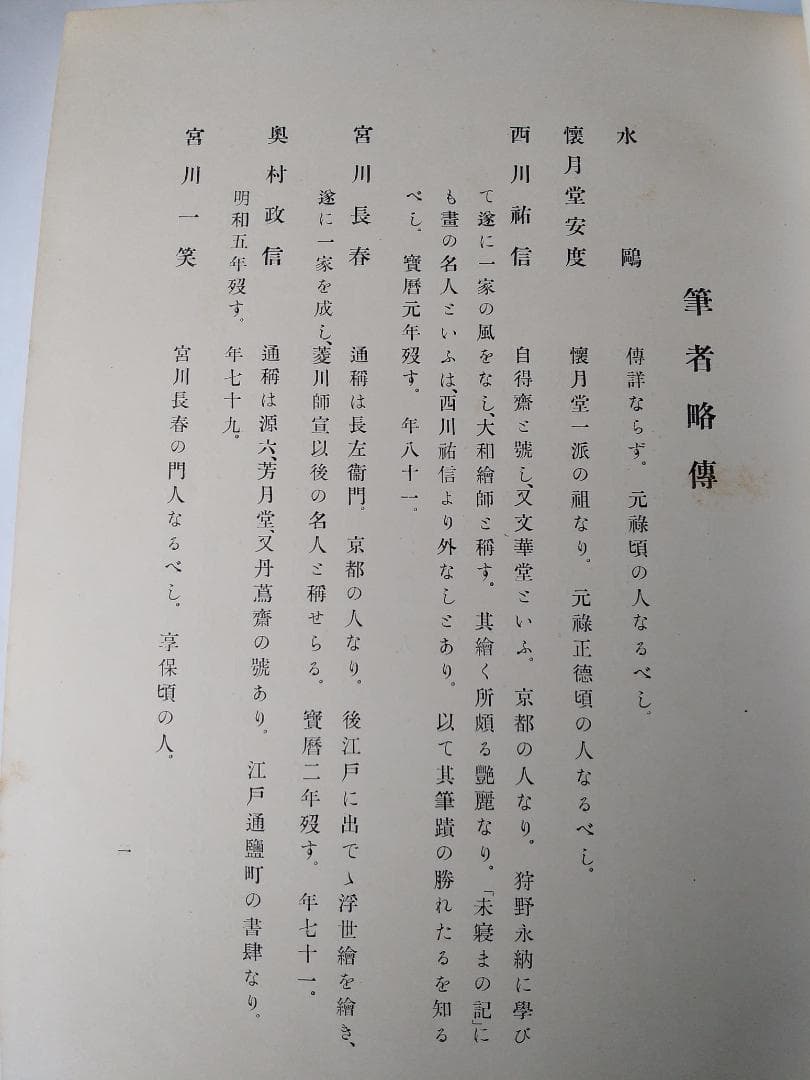 筆者略傳
水鷗 傳詳ならず。元祿頃の人なるべし。
懷月堂安度 懷月堂一派の祖なり。元祿正德頃の人なるべし。
西川祐信 自得齋と號し、又文華堂といふ。京都の人なり。狩野永納に學び
て遂に一家の風をなし、大和繪師と稱す。其繪く所頗る艷麗なり。「未寢まの記」に
も畫の名人といふは、西川祐信より外なしとあり。以て其筆蹟の勝れたるを知る
べし。寶曆元年歿す。年八十一。
宮川長春 通稱は長左衞門。京都の人なり。後江戶に出でゝ浮世繪を繪き、
遂に一家を成し、菱川師宣以後の名人と稱せらる。寶曆二年歿す。年七十一。
奧村政信 通稱は源六、芳月堂、又丹蔦齋の號あり。江戶通鹽町の書肆なり。
明和五年歿す。年七十九。
宮川一笑 宮川長春の門人なるべし。享保頃の人。
一